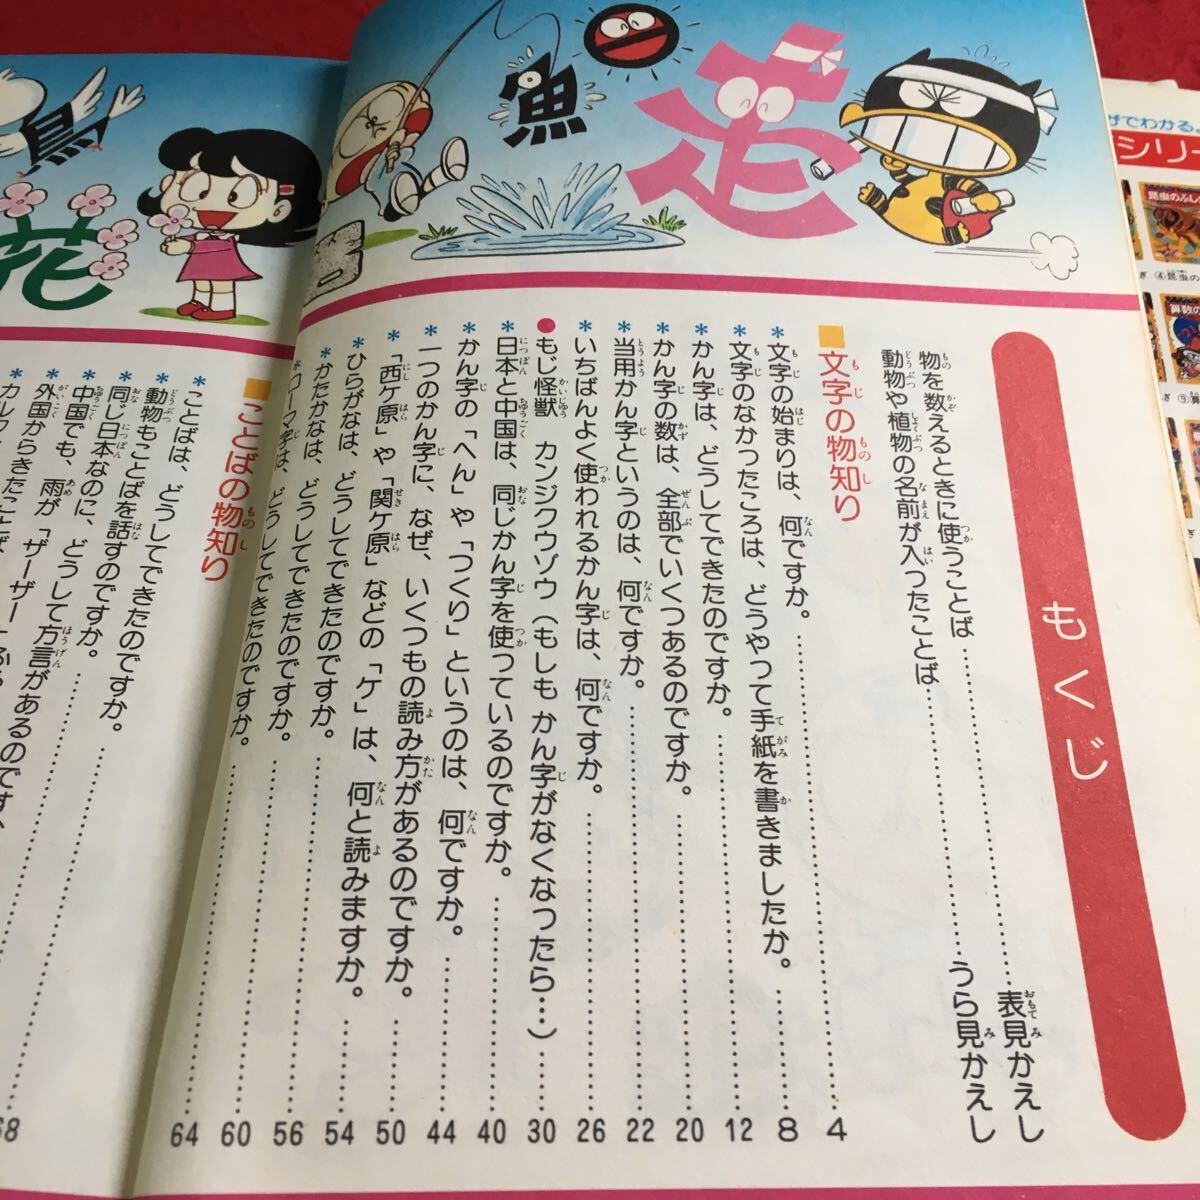 もくじ
物を数えるときに使うことば………表見かえし
動物や植物の名前が入ったことば………うら見かえし
■文字の物知り
＊文字の始まりは、何ですか。………4
＊文字のなかったころは、どうやって手紙を書きましたか。………8
＊かん字は、どうしてできたのですか。………12
＊かん字の数は、全部でいくつあるのですか。………20
＊当用かん字というのは、何ですか。………22
＊いちばんよく使われるかん字は、何ですか。………26
●もじ怪獣 カンジクウゾウ（もしも かん字がなくなったら…）………30
＊日本と中国は、同じかん字を使っているのですか。………40
＊かん字の「へん」や「つくり」というのは、何ですか。………44
＊一つのかん字に、なぜ、いくつもの読み方があるのですか。………50
＊「西ケ原」や「関ケ原」などの「ケ」は、何と読みますか。………54
＊ひらがなは、どうしてできたのですか。………56
＊かたかなは、どうしてできたのですか。………60
＊ローマ字は、どうしてできたのですか。………64
■ことばの物知り
＊ことばは、どうしてできたのですか。………68
＊動物もことばを話すのですか。
＊同じ日本なのに、どうして方言があるのです
＊中国でも、雨が「ザーザー」ふ
＊外国からきたことば
魚
走
鳥
花
シリー
昆虫のふし
④昆虫の
算数の